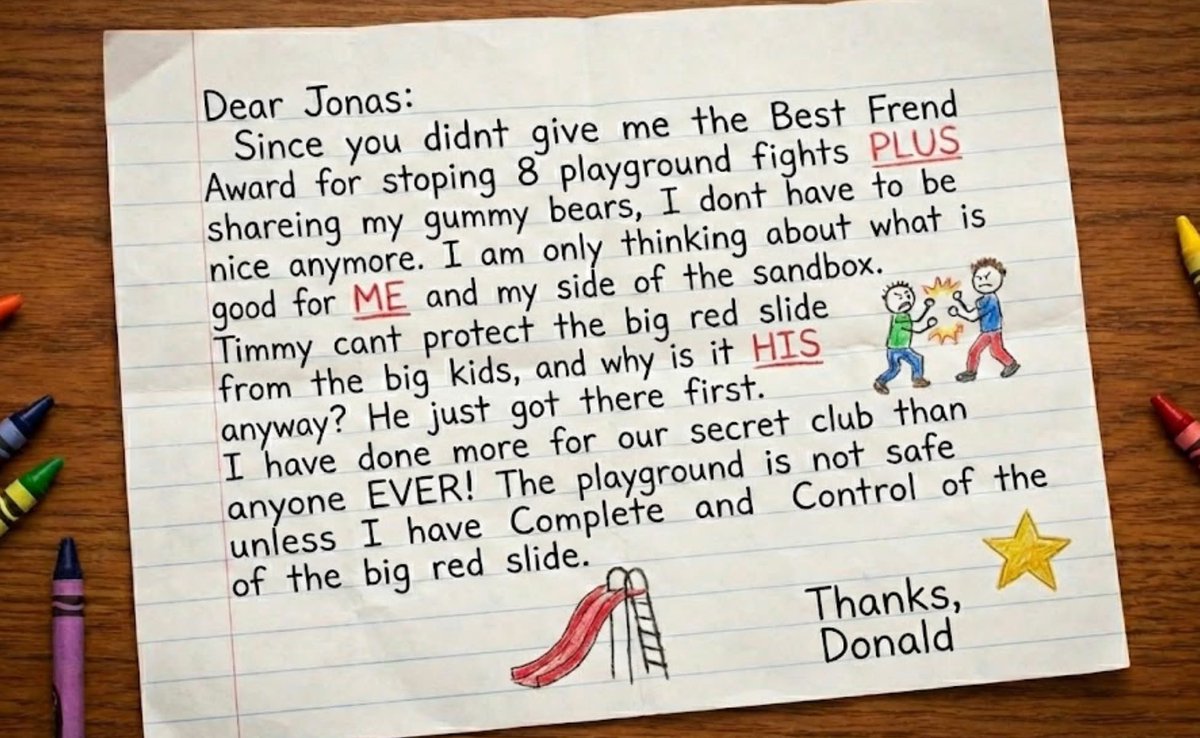 Dear Jonas:
Since you didnt give me the Best Frend
Award for stoping 8 playground fights PLUS
shareing my gummy bears, I dont have to be
nice anymore. I am only thinking about what is
good for ME and my side of the sandbox.
Timmy cant protect the big red slide
from the big kids, and why is it HIS
anyway? He just got there first.
I have done more for our secret club than
anyone EVER! The playground is not safe
unless I have Complete and Control of the
of the big red slide.
Thanks,
Donald